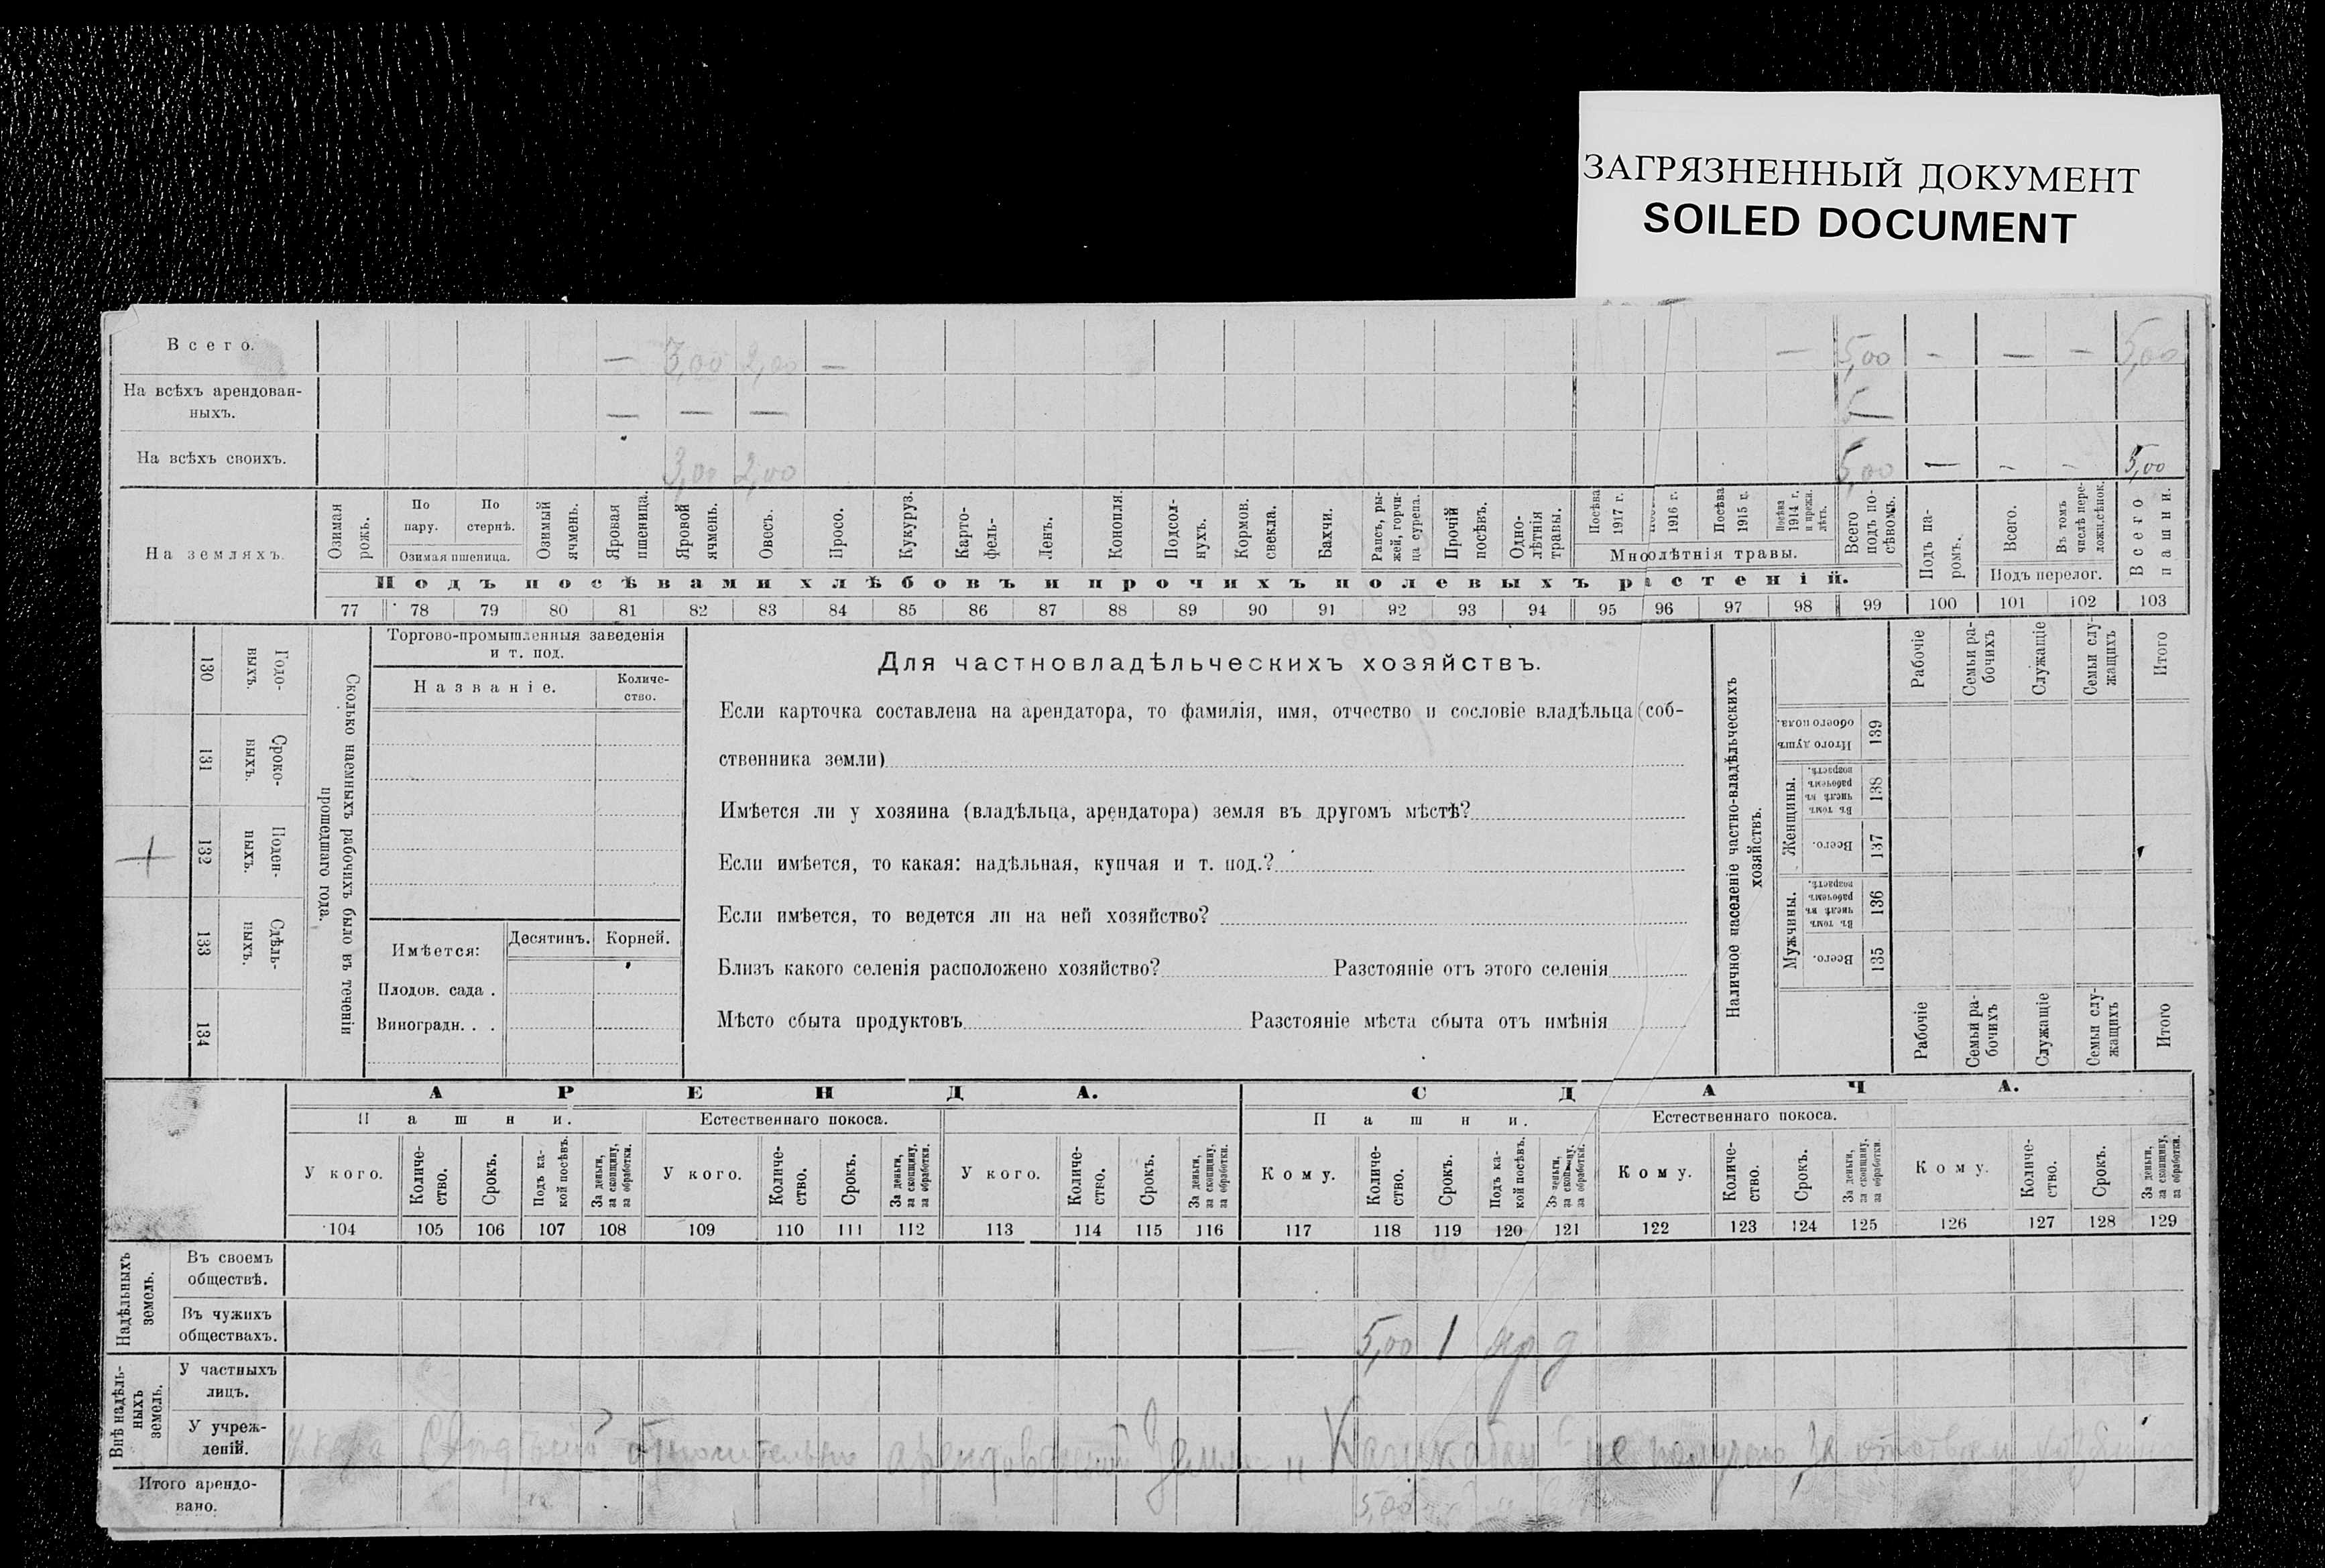 ЗАГРЯЗНЕННЫЙ ДОКУМЕНТ
SOILED DOCUMENT
Всего. — 3,00 2,00 — — 5,00 — — — 5,00
На всѣхъ арендован-
ныхъ. — — —
На всѣхъ своихъ. 3,00 2,00 5,00 — – – 5,00
На земляхъ.
Озимая рожь.
По пару.
По стернѣ.
Озимая пшеница.
Озимый ячмень.
Яровая пшеница.
Яровой ячмень.
Овесъ.
Просо.
Кукуруз.
Карто-фель-
Ленъ.
Конопля.
Подсол-нухъ.
Кормов. свекла.
Бахчи.
Рапсъ, ры-жей, горчи-ца сурепа.
Прочій посѣвъ.
Одно-лѣтнія травы.
Посѣва 1917 г.
1916 г.
Посѣва 1915 г.
Посѣва 1914 г. и прежн. лѣтъ.
Многолѣтнія травы.
Всего подъ по-сѣвомъ.
Подъ па-ромъ.
Всего.
Въ томъ числѣ пере-ложн.сѣнок.
Подъ перелог.
Всего пашни.
Подъ посѣвами хлѣбовъ и прочихъ полевыхъ растеній.
77 78 79 80 81 82 83 84 85 86 87 88 89 90 91 92 93 94 95 96 97 98 99 100 101 102 103
130 Годо-выхъ.
131 Сроко-выхъ.
132 Поден-ныхъ.
133 Сдѣль-ныхъ.
134
Сколько наемныхъ рабочихъ было въ теченіи
прошедшаго года.
Торгово-промышленныя заведенія
и т. под.
Названіе. Количе-ство.
Имѣется: Десятинъ. Корней.
Плодов. сада .
Виноградн. . .
Для частновладѣльческихъ хозяйствъ.
Если карточка составлена на арендатора, то фамилія, имя, отчество и сословіе владѣльца (соб-
ственника земли)
Имѣется ли у хозяина (владѣльца, арендатора) земля въ другомъ мѣстѣ?
Если имѣется, то какая: надѣльная, купчая и т. под.?
Если имѣется, то ведется ли на ней хозяйство?
Близъ какого селенія расположено хозяйство? Разстояніе отъ этого селенія
Мѣсто сбыта продуктовъ Разстояніе мѣста сбыта отъ имѣнія
Наличное населеніе частно-владѣльческихъ
хозяйствъ.
Рабочіе
Семьи ра-бочихъ
Служащіе
Семьи слу-жащихъ
Итого
Итого душъ обоего пола. 139
Женщины.
Въ томъ числѣ въ рабочемъ возрастѣ. 138
Всего. 137
Мужчины.
Въ томъ числѣ въ рабочемъ возрастѣ. 136
Всего. 135
Рабочіе
Семьи ра-бочихъ
Служащіе
Семьи слу-жащихъ
Итого
АРЕНДА. СДАЧА.
Пашни. Естественнаго покоса. Пашни. Естественнаго покоса.
У кого.
Количе-ство.
Срокъ.
Подъ ка-кой посѣвъ.
За деньги, за скопщину, за обработки.
У кого.
Количе-ство.
Срокъ.
За деньги, за скопщину, за обработки.
У кого.
Количе-ство.
Срокъ.
За деньги, за скопщину, за обработки.
Кому.
Количе-ство.
Срокъ.
Подъ ка-кой посѣвъ.
За деньги, за скопщину, за обработки.
Кому.
Количе-ство.
Срокъ.
За деньги, за скопщину, за обработки.
Кому.
Количе-ство.
Срокъ.
За деньги, за скопщину, за обработки.
104 105 106 107 108 109 110 111 112 113 114 115 116 117 118 119 120 121 122 123 124 125 126 127 128 129
Надѣльныхъ земель.
Въ своемъ
обществѣ.
Въ чужихъ
обществахъ. — 5,00 1 яр д
Внѣ надѣль-ныхъ земель.
У частныхъ
лицъ.
У учреж-
деній.
относительно земли не за
Итого арендо-
вано. 5,00